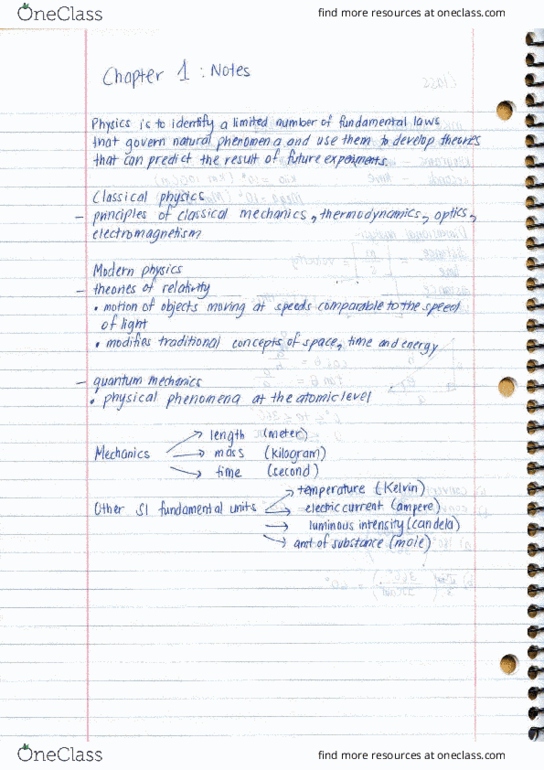 OneClass
find more resources at oneclass.com
Chapter 1 : Notes
Physics is to identify a limited number of fundamental laws
that govern natural phenomena and use them to develop theories
that can predict the result of future experiments.
Classical physics
- principles of classical mechanics, thermodynamics, optics,
electromagnetism
Modern physics
- theories of relativity
• motion of objects moving at speeds comparable to the speed
of light
• modifies traditional concepts of space, time and energy
- quantum mechanics
• physical phenomena at the atomic level
Mechanics → length (meter)
→ mass (kilogram)
→ time (second)
Other SI fundamental units → temperature (Kelvin)
→ electric current (ampere)
→ luminous intensity (candela)
→ amt of substance (mole)
OneClass
find more resources at oneclass.com